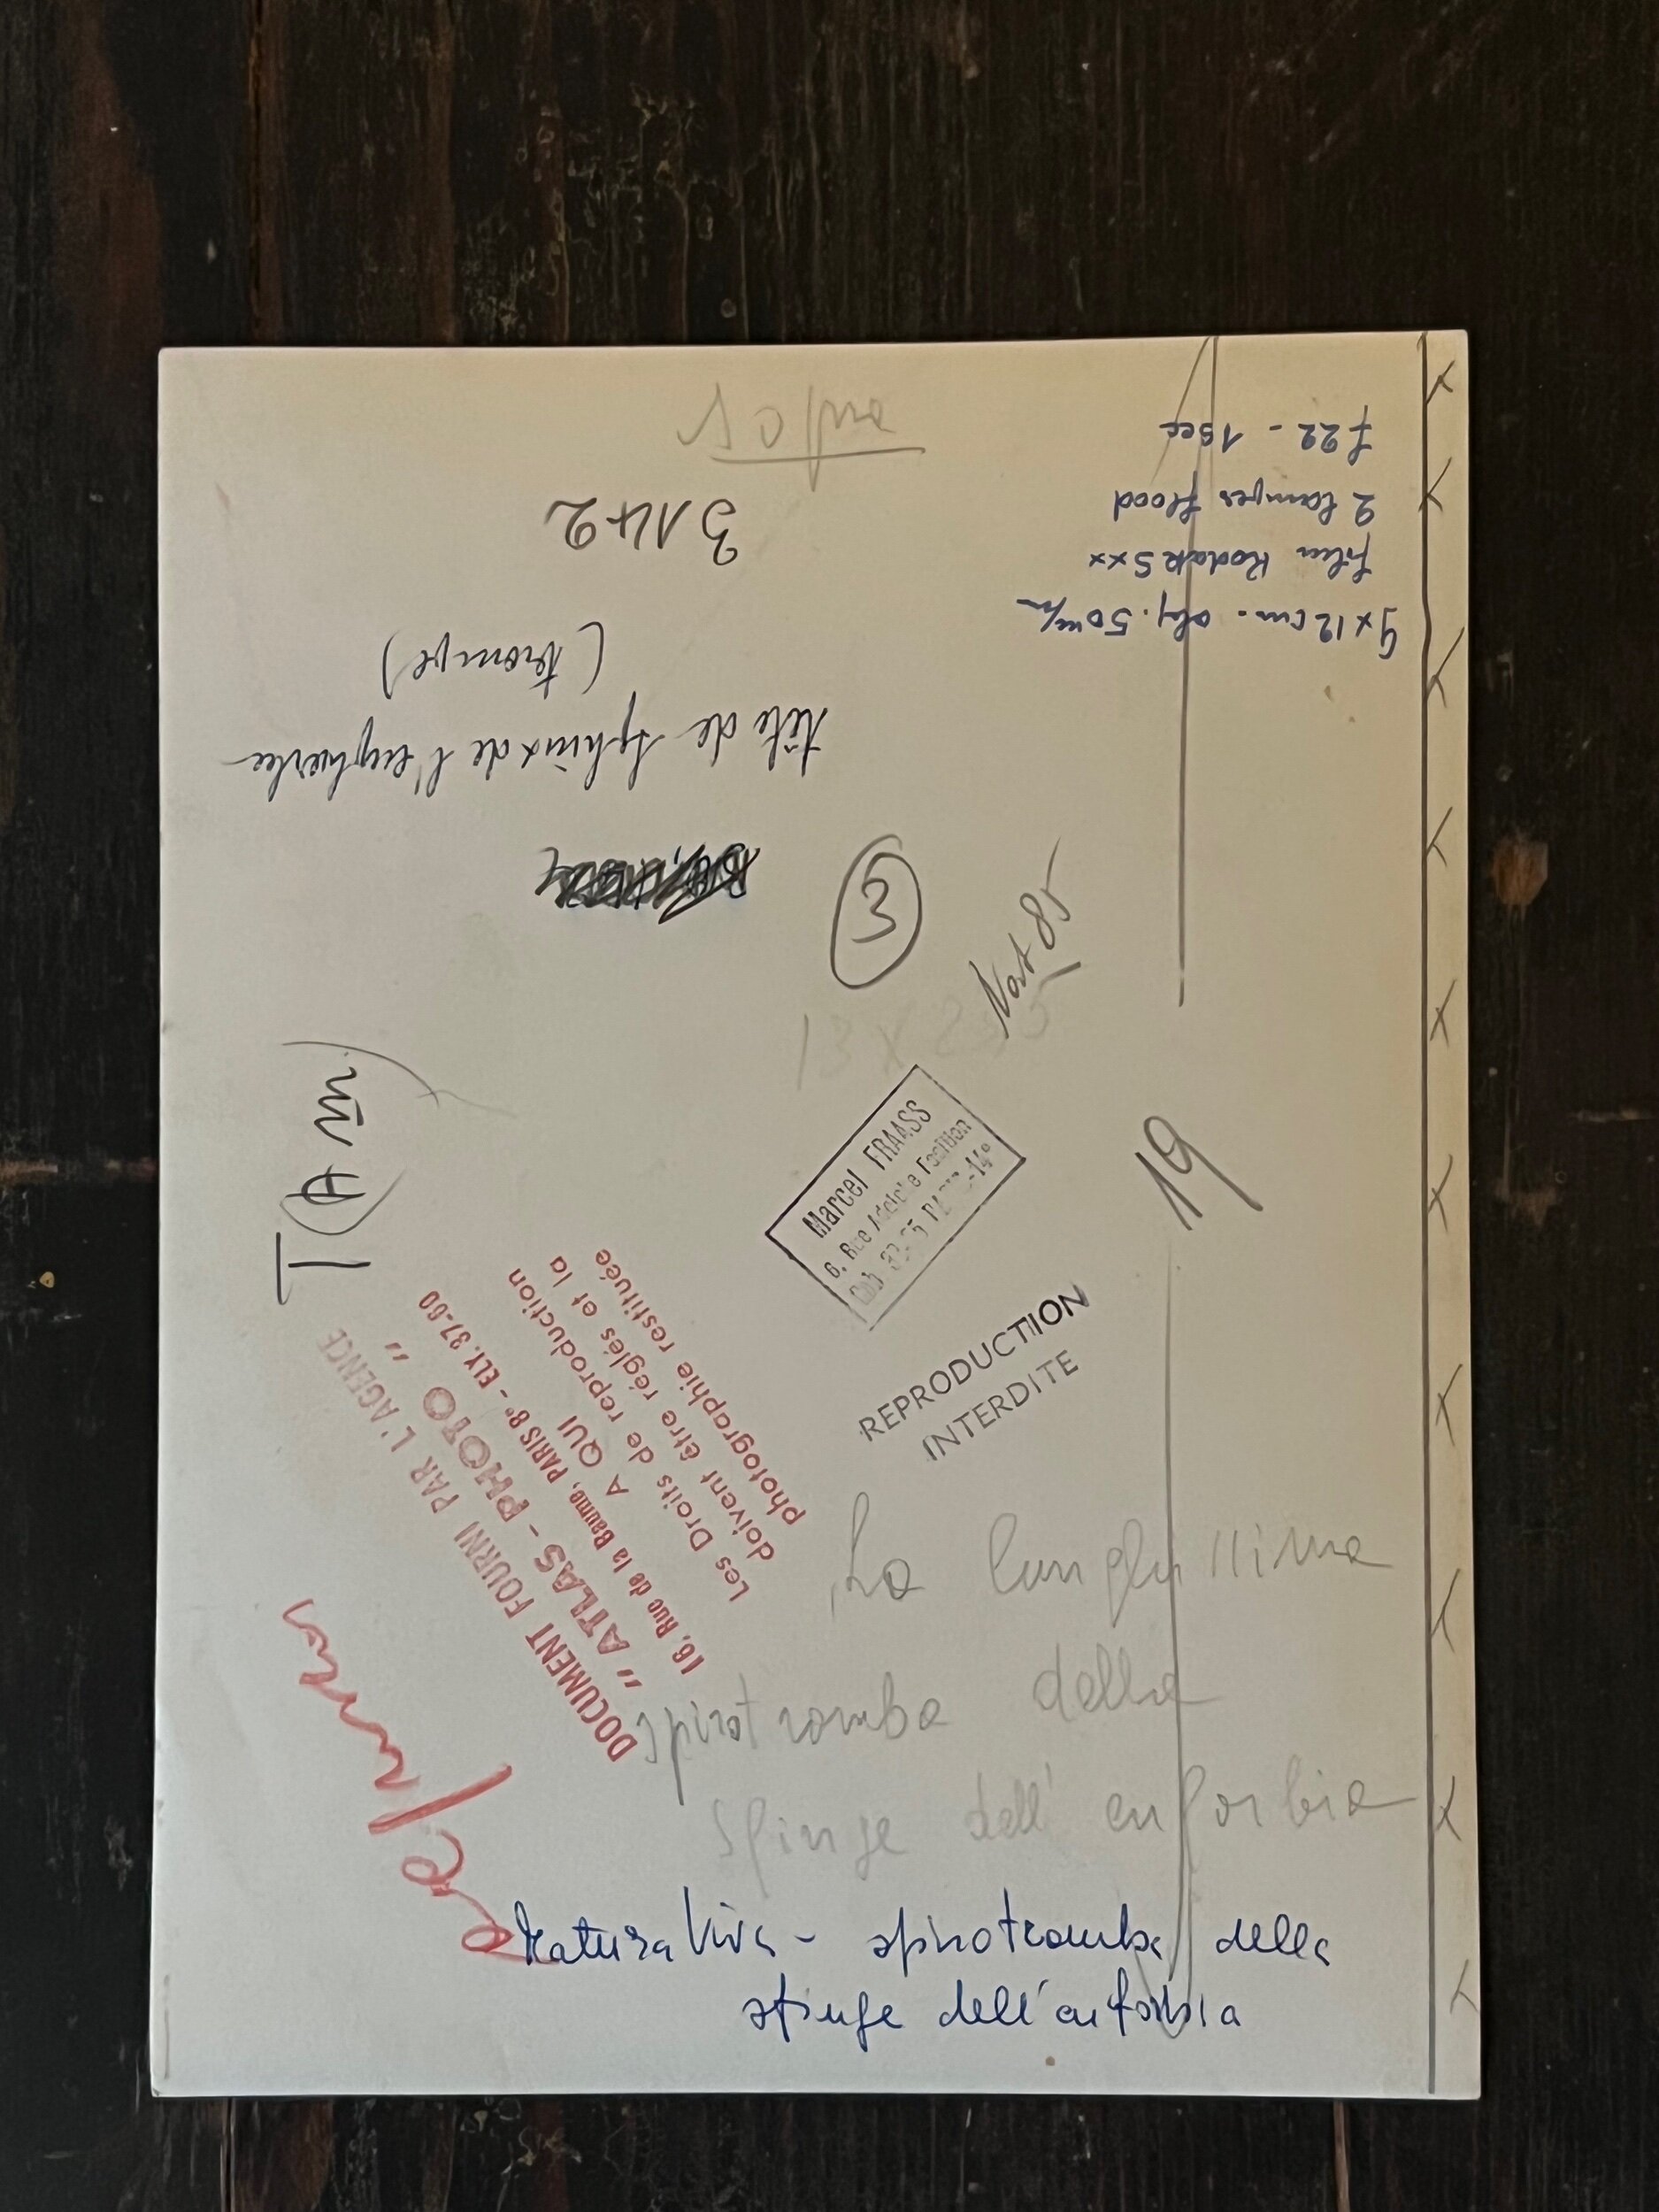 sopra
3142
f 22 - 1 sec
2 lampes flood
film Kodak Sxx
9x12 cm - obj. 50 m/m
tête de sphinx de l'euphorbe
(trompe)
3
Nat 85
19
Marcel FRAASS
6, Rue Adolphe Focillon
PARIS-14e
REPRODUCTION
INTERDITE
DOCUMENT FOURNI PAR L'AGENCE
"ATLAS-PHOTO"
16, Rue de la Baume, PARIS 8e - ELY. 37-60
A QUI
Les Droits de reproduction
doivent être réglés et la
photographie restituée
La lunghissima
spirotromba della
sfinge dell'euforbia
Natura Viva - spirotromba della
sfinge dell'euforbia